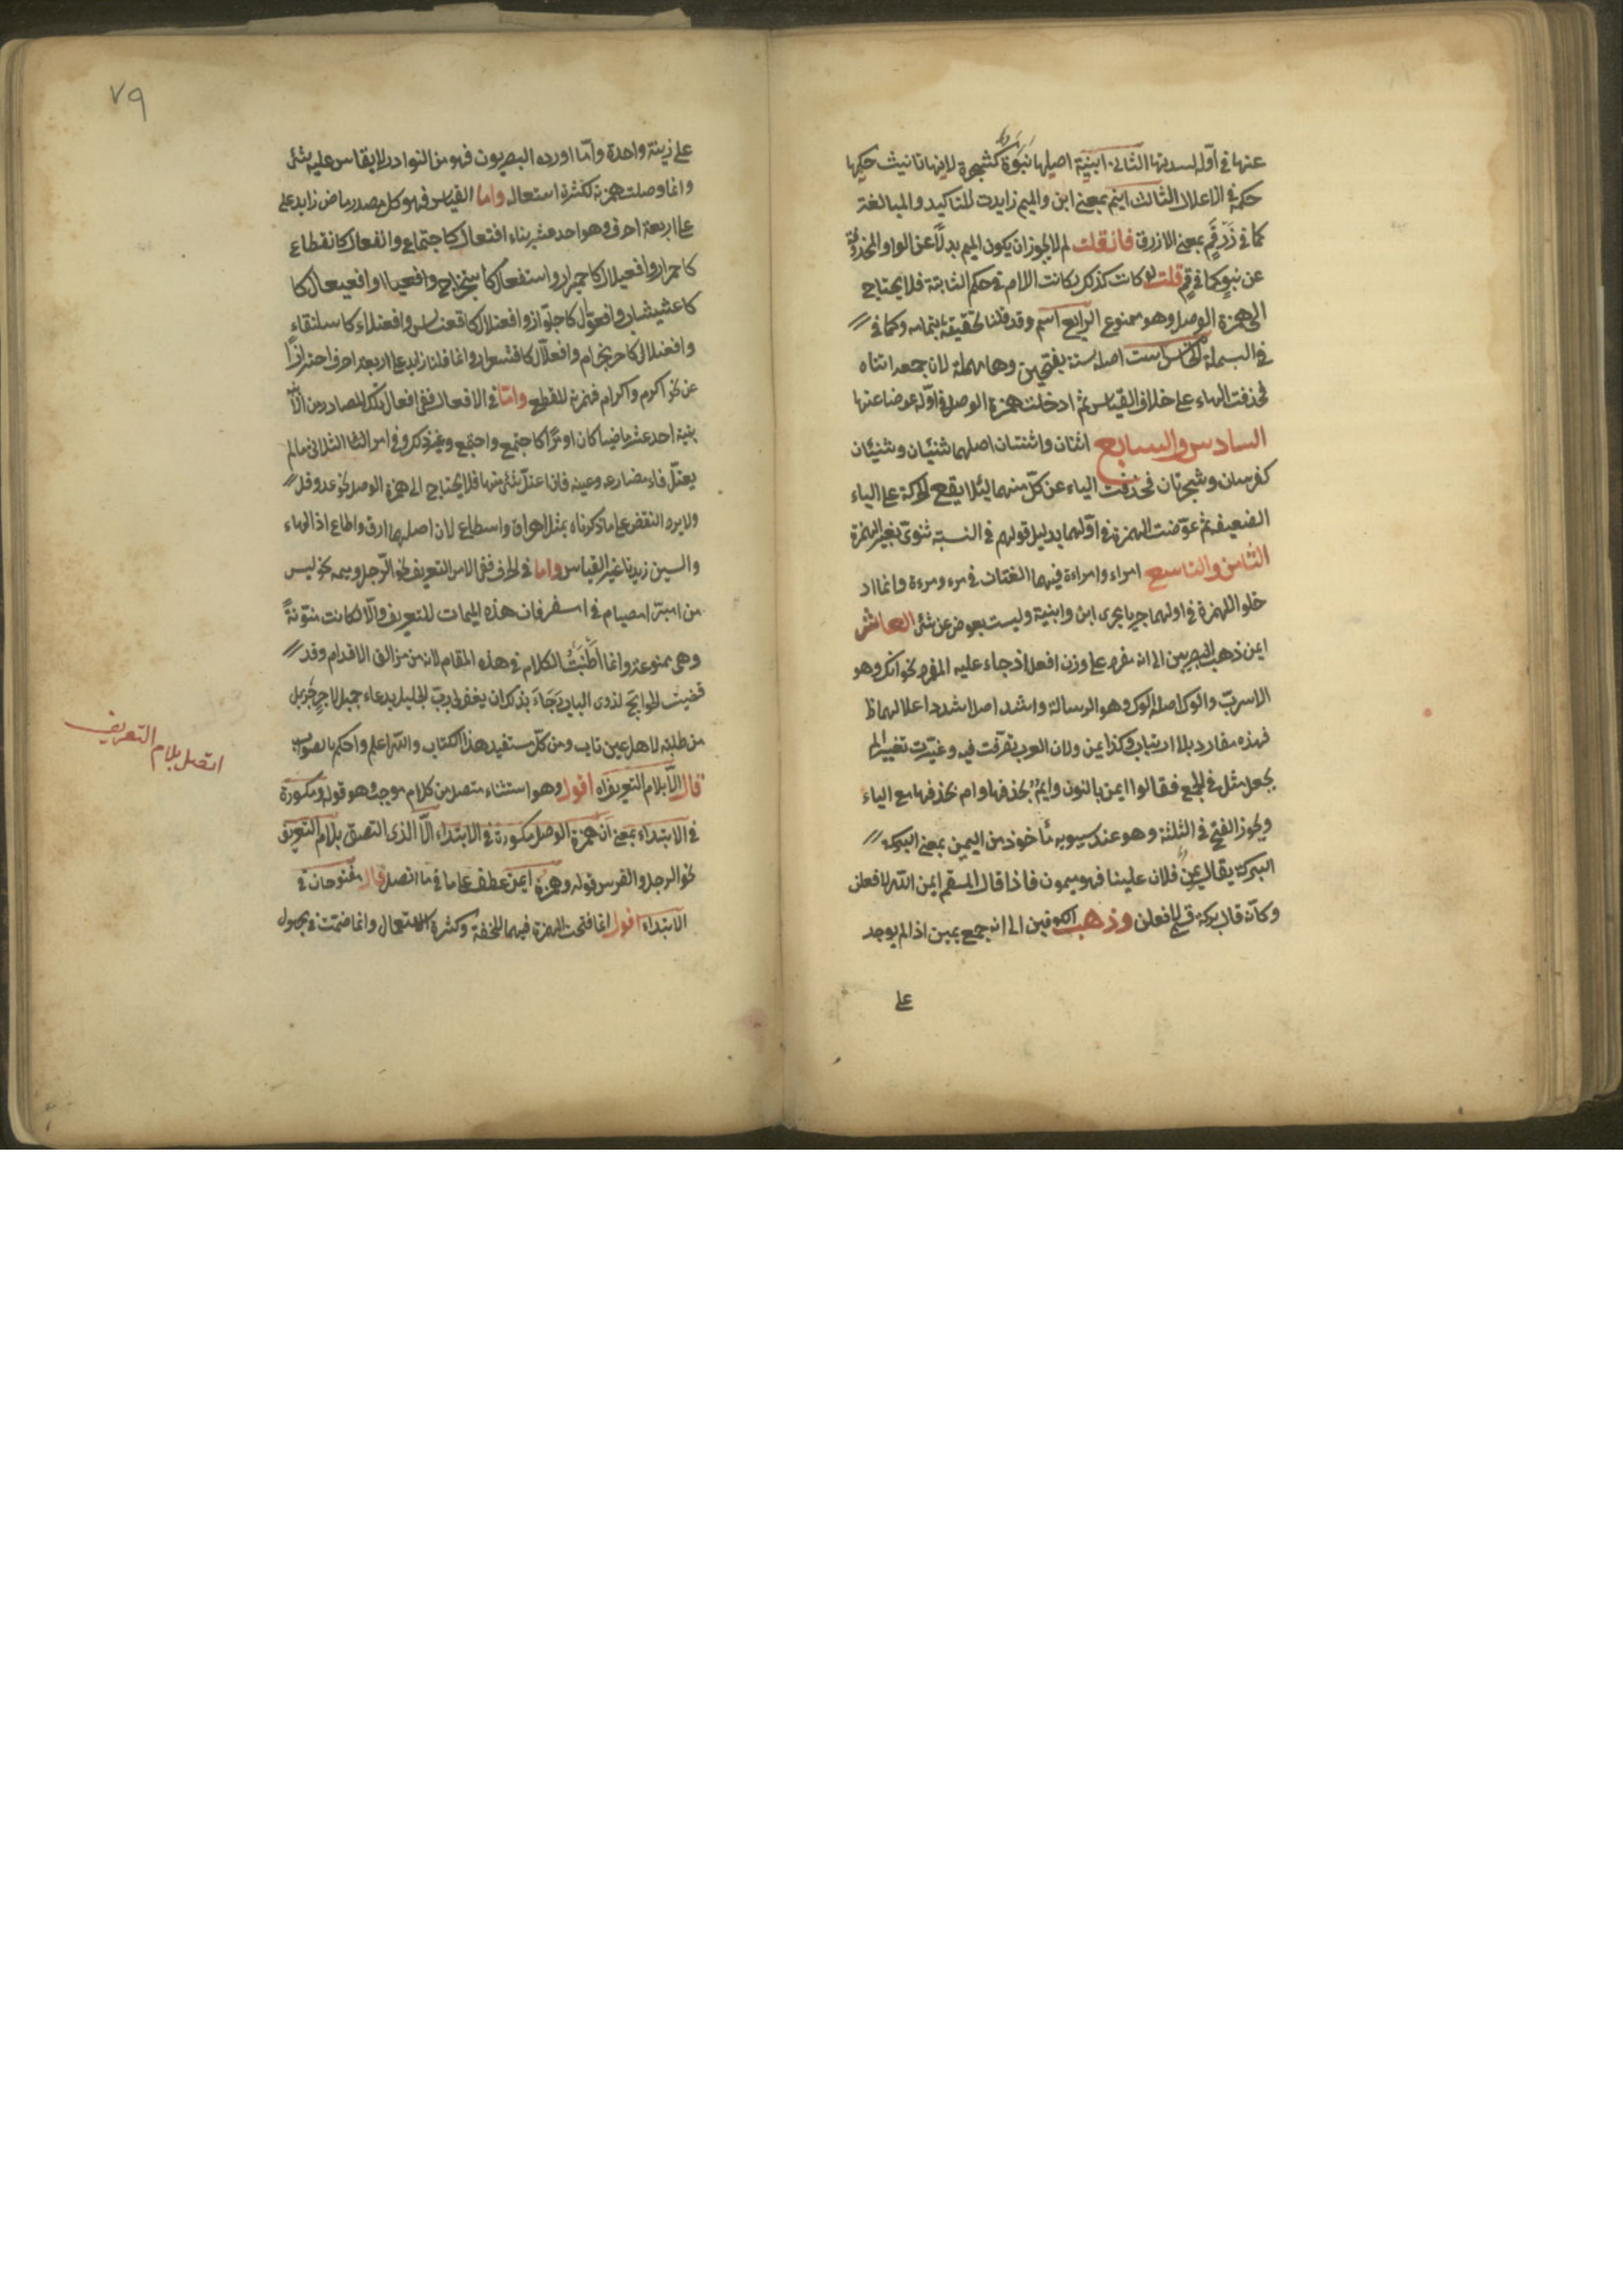 عنها في أوله لسد بها الثاني ابنية اصلها بنوة كشجرة لانها تانيث حكمها
حكمه في الاعلال الثالث ابنم بمعنى ابن والميم زايدت للتاكيد والمبالغة
كما في زرقم بمعنى الازرق فانقلت لم لا يجوز ان يكون الميم بدلًا عن الواو المحذوفة
عن بنو كما في فم قلت لو كانت كذلك لكانت اللام في حكم الثابتة فلا يحتاج
الى همزة الوصل وهو ممنوع الرابع اسم وقد قلنا تحقيقه بتمامه وكما في
في البسملة الخامس است اصله سته بفتحتين وها مهملة لان جمعه استاه
فحذفت الهاء على خلاف القياس ثم ادخلت همزة الوصل في اوله عوضا عنها
السادس والسابع اثنان واثنتان اصلهما ثنيان وثنيتان
كفرسان وشجرتان فحذفت الياء عن كل منهما لئلا يقع الحركة على الياء
الضعيف ثم عوضت الهمزة في اولهما بدليل قولهم في النسبة ثنوي بغير الهمزة
الثامن والتاسع امراء وامراءة فيهما الغتان في مرء ومرءة وانما اد
خلو الهمزة في اولهما اجريا مجرى ابن وابنية وليست بعوض عن شئ العاشر
ايمن ذهب البصريين الى انه مفرد على وزن افعل اذ جاء عليه المفرد نحو انك وهو
الاسرب والوك اصله الوك وهو الرسالة واشد اصله اشدد اعلالهما ظ
فهذه مفارد بلا ارتياب وكذا ايمن ولان العرب تفرقت فيه وغيرت تغييرا لم
يجعل مثل في الجمع فقالوا ايمن بالنون وايم بحذفها وام بحذفها مع الياء
ويجوز الفتح في الثلثة وهو عند سيبويه مأخوذ من اليمين بمعنى البركة
البركة يقال يمن فلان علينا فهو ميمون فاذا قال المسقم ايمن الله لافعلن
وكأنه قال بركة قسمي لافعلن وذهب الكوفين الى انه جمع يمين اذا لم يوجد
على
٧٩
على زينة واحدة وأما اورده البصريون فهو من النوادر لا يقاس عليه شئ
وانما وصلت همزته لكثرة استعماله واما القياس فهو كل مصدر ماض زايد على
على اربعة احرف وهو احد عشر بناء افتعال كاجتماع وانفعال كانقطاع
كاحمرار وافعيلال كاحميرار واستفعال كاستخراج وافعيعال كا
كاعشيشاب وافعوّال كاجلوّاز وافعنلال كاقعنساس وافعنلاء كاسلنقاء
وافعنلال كاحرنجام وافعلّال كاقشعرار وانما قلنا زايد على اربعة احرف احترازًا
عن نحو اكرم واكرام فهمزته للقطع وامّا في الافعال ففي افعال تلك المصادر من الا
بنية احد عشر ماضيا كان او امرًا كاجتمع واجتمع وغير ذلك وفي امر الثلاثي مالم
يعتل فاء مضارعه وعينه فاذا اعتل شئ منها فلا يحتاج الى همزة الوصل نحو عد وقل
ولا يرد النقض على ما ذكرناه بمثل اهراق واسطاع لان اصلهما اراق واطاع اذ الهاء
والسين زيدتا غير القياس واما في الحرف ففي لام التعريف نحو الرجل وميمه نحو ليس
من امبر امصيام في امسفر فان هذه الميمات للتعريف والّا لكانت منوّنةً
وهي ممنوعة وانما اطنبت الكلام في هذه المقام لانه من مزالق الاقدام وقد
قضيت الحوايج لذوى الباب رجاء بذلك ان يغفر لي رب الجليل بدعاء جميل لاجر جزيل
من طلبته لاهل عين تاب ومن كل مستفيد هذا الكتاب والله اعلم واحكم بالصواب
قال الّا بلام التعريف اه اقول وهو استثناء متصل من كلام موجب وهو قوله ومكسورة
في الابتداء بمعنى ان همزة الوصل مكسورة في الابتداء الّا الذى التصق بلام التعريف
نحو الرجل والفرس قوله وهمزة ايمن عطف على ما في ما اتصل قال مفتوحان في
الابتداء اقول انما فتحت الهمزة فيهما للخفة وكثرة الاستعمال وانما ضمتت في مجهول
اتصل بلام التعريف